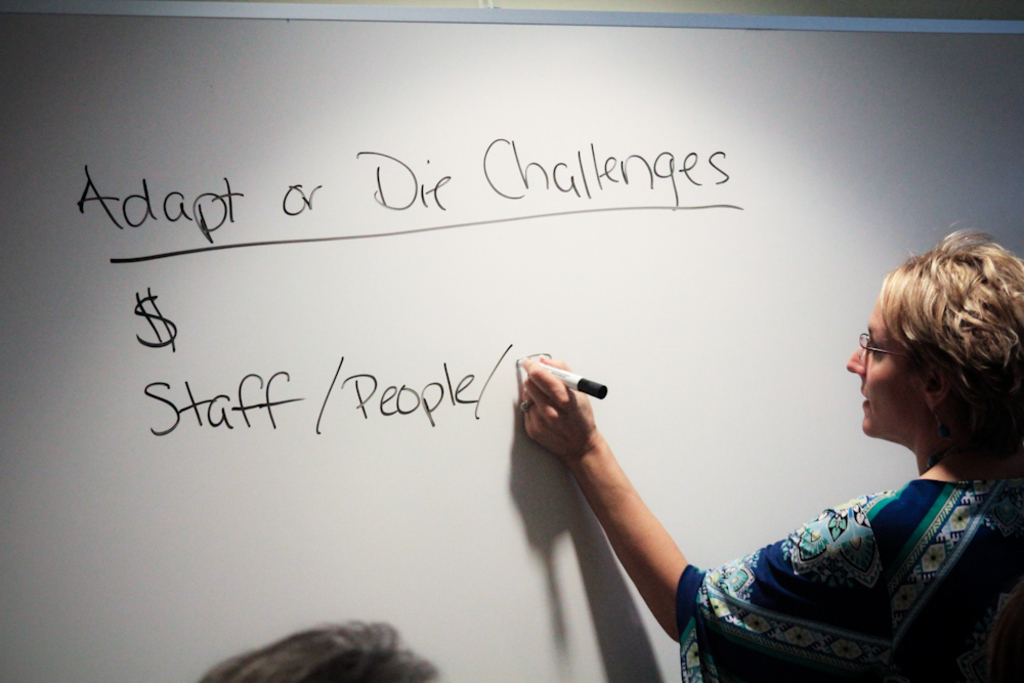 Adapt or Die Challenges
$
Staff / People /